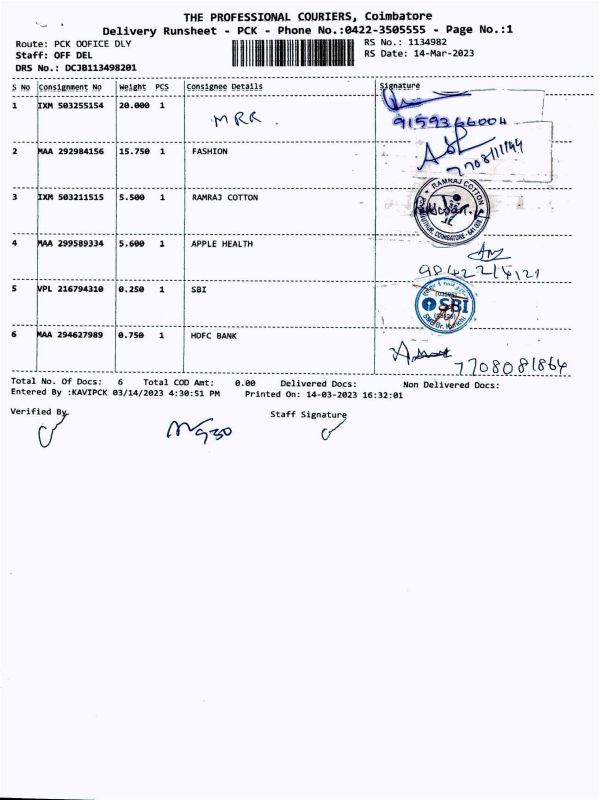 THE PROFESSIONAL COURIERS, Coimbatore
Delivery Runsheet - PCK - Phone No.:0422-3505555 - Page No.:1
Route: PCK OOFICE DLY
RS No.: 1134982
Staff: OFF DEL
RS Date: 14-Mar-2023
DRS No.: DCJB113498201
S No Consignment No Weight PCS Consignee Details Signature
1 IXM 503255154 20.000 1 MRR.
9159366004
2 MAA 292984156 15.750 1 FASHION
7708111144
3 IXM 503211515 5.500 1 RAMRAJ COTTON
RAMRAJ COTTON
COIMBATORE
4 MAA 299589334 5.600 1 APPLE HEALTH
5 VPL 216794310 0.250 1 SBI
SBI
6 MAA 294627989 0.750 1 HDFC BANK
7708081864
Total No. Of Docs: 6 Total COD Amt: 0.00 Delivered Docs: Non Delivered Docs:
Entered By :KAVIPCK 03/14/2023 4:30:51 PM Printed On: 14-03-2023 16:32:01
Verified By
Staff Signature
930